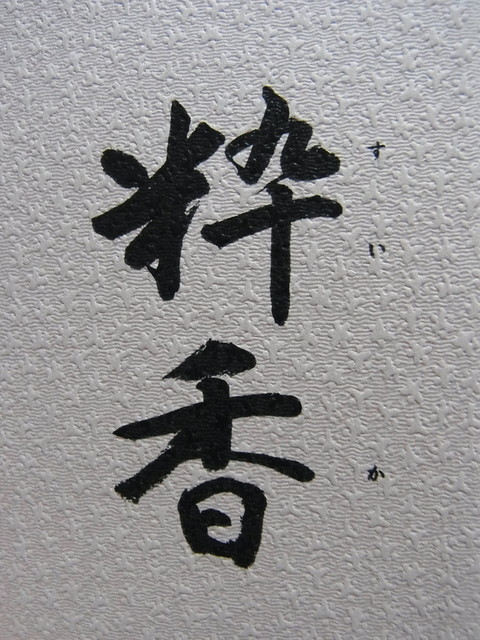 粋香
すいか